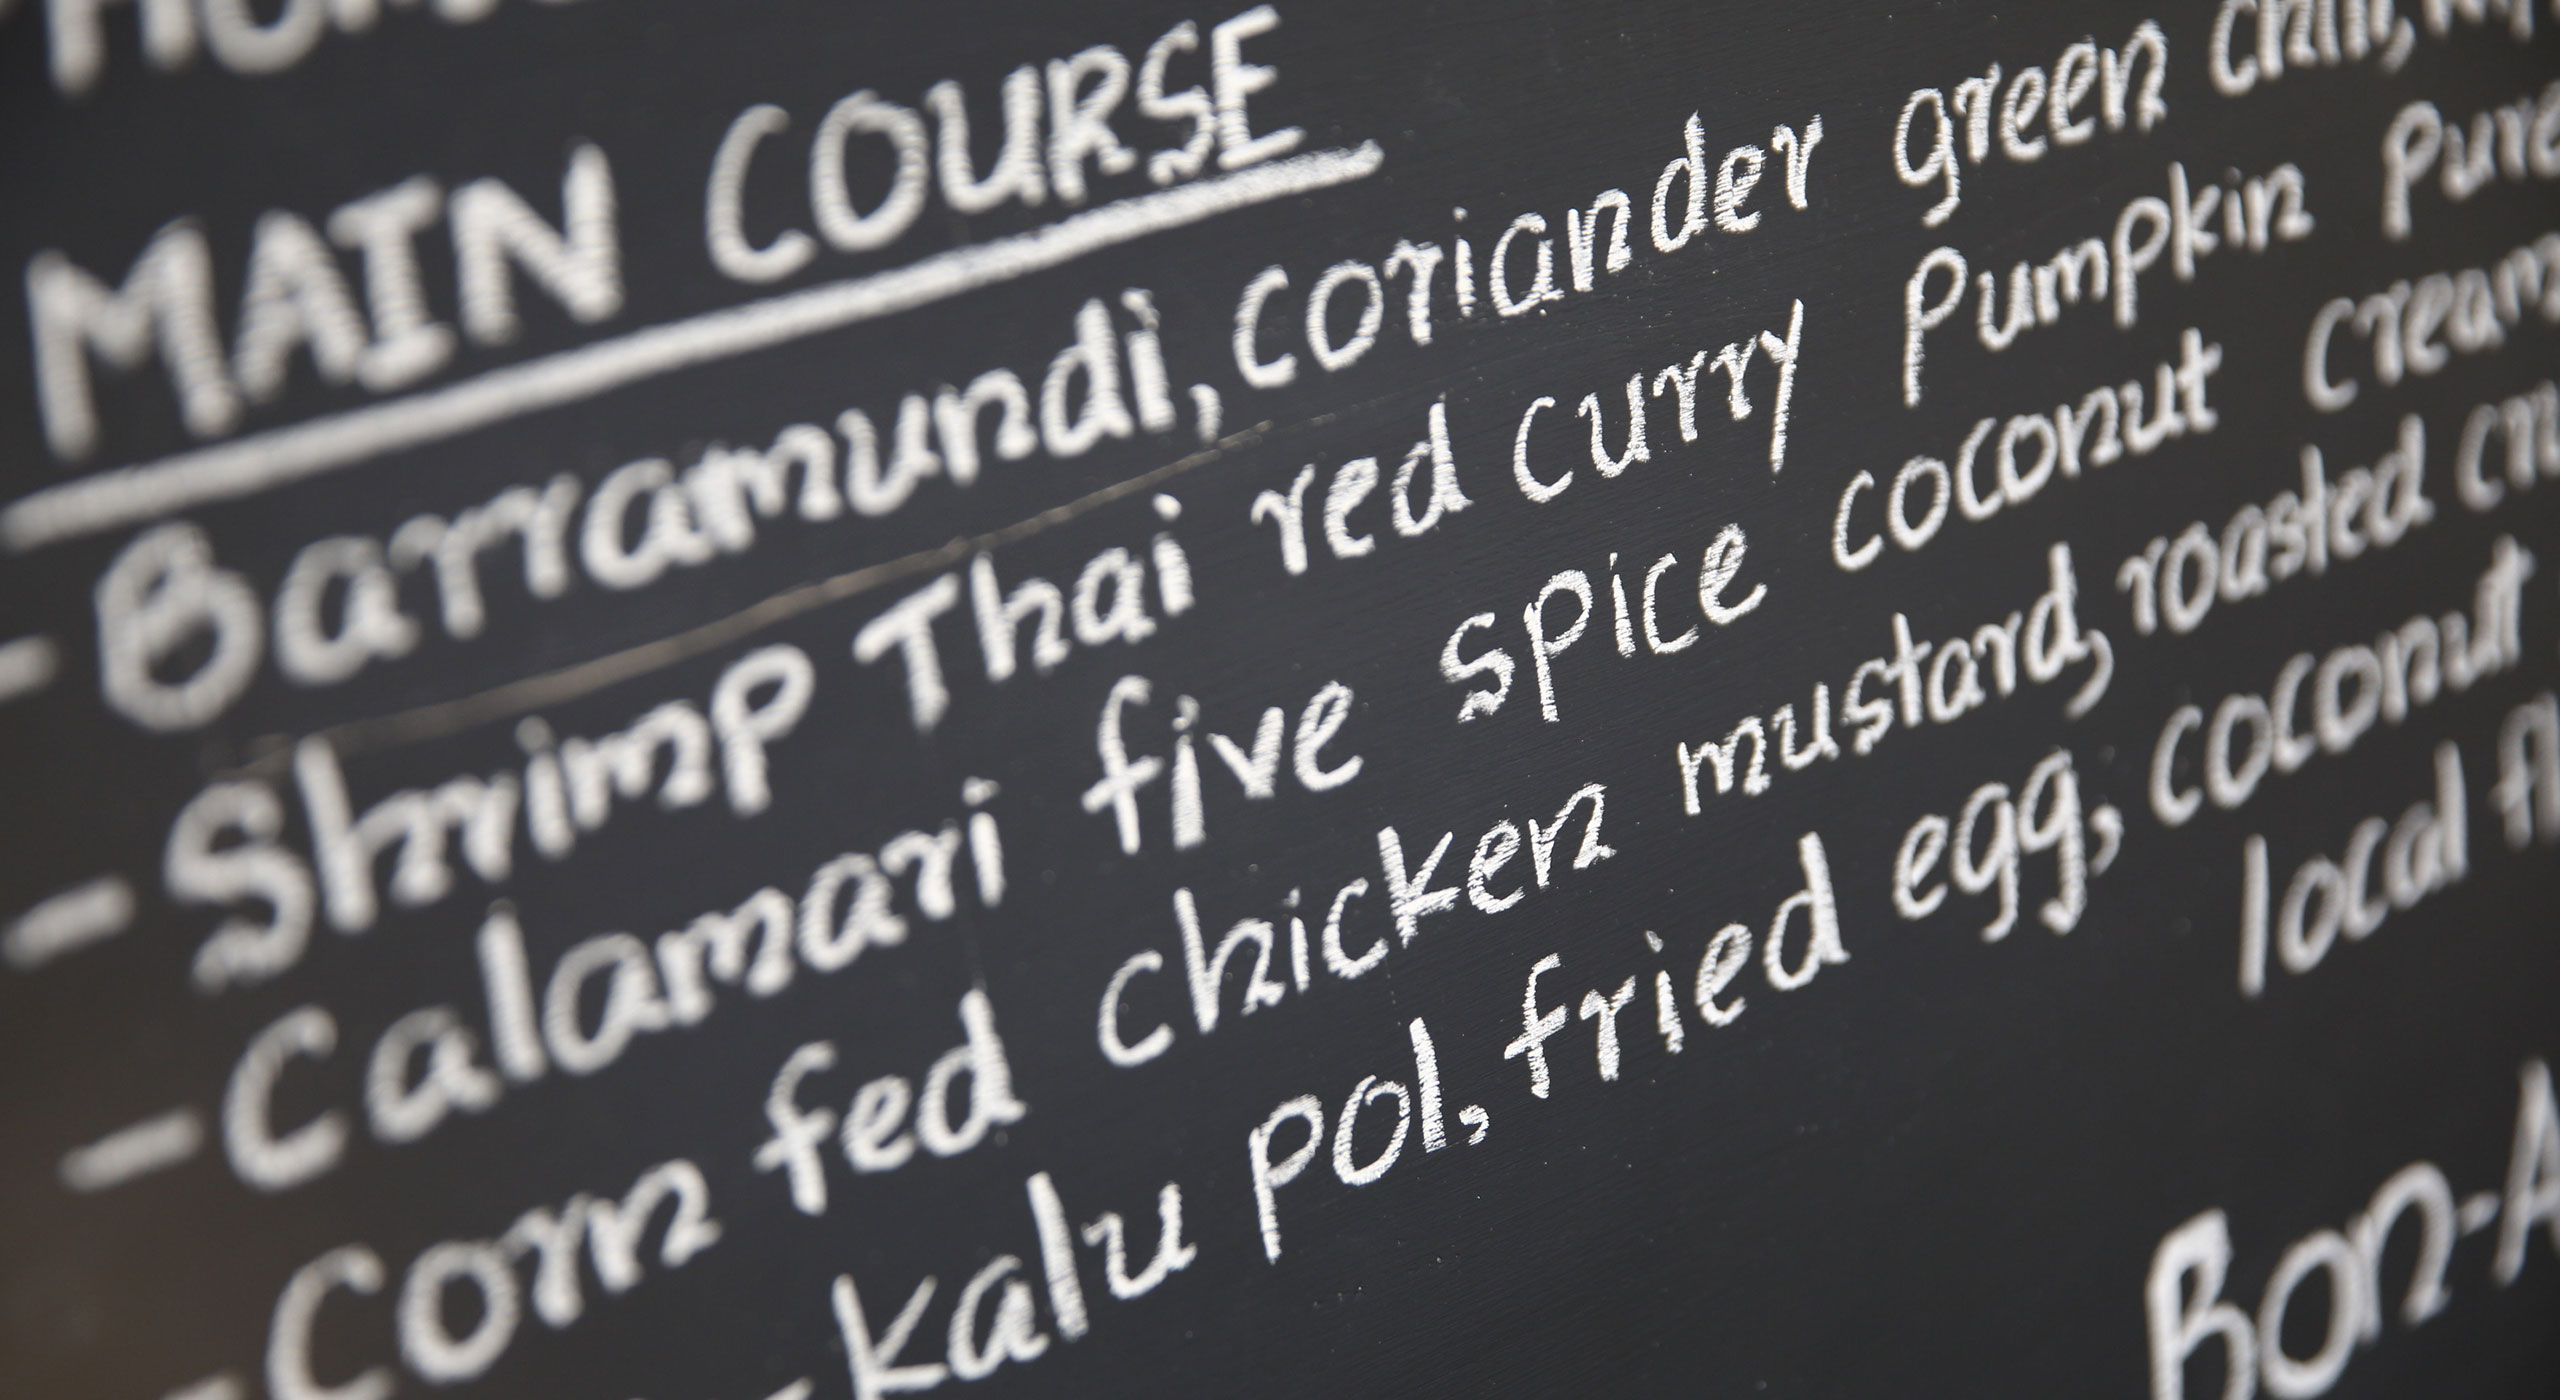 MAIN COURSE
- Barramundi, coriander green chili,
- Shrimp Thai red curry Pumpkin
- Calamari five spice coconut cream
- Corn fed chicken mustard, roasted
- kalu pol, fried egg, coconut
local
Bon-A